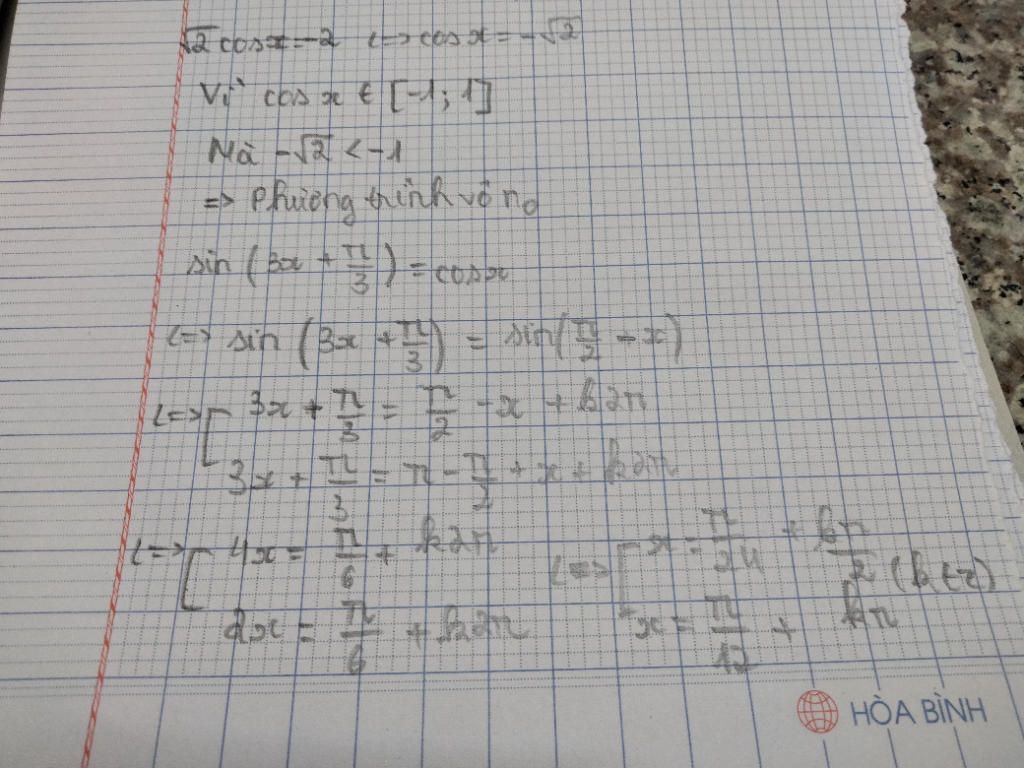 √2 cosx = -2 <=> cosx = -√2
Vì cosx ∈ [-1; 1]
Mà -√2 < -1
=> Phương trình vô n₀
sin (3x + π/3) = cosx
<=> sin (3x + π/3) = sin(π/2 - x)
<=> [ 3x + π/3 = π/2 - x + k2π
3x + π/3 = π - π/2 + x + k2π
<=> [ 4x = π/6 + k2π <=> [ x = π/24 + kπ/2 (k ∈ Z)
2x = π/6 + k2π x = π/12 + kπ
HÒA BÌNH